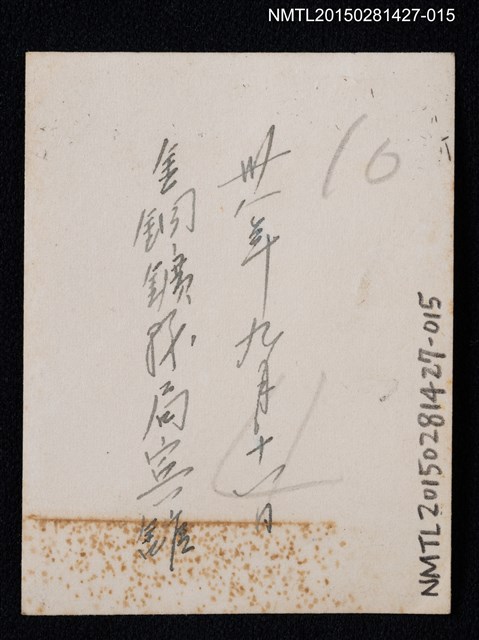 NMTL20150281427-015
10
卅八年九月十八日
金銅鑛務局賓館
4
NMTL20150281427-015